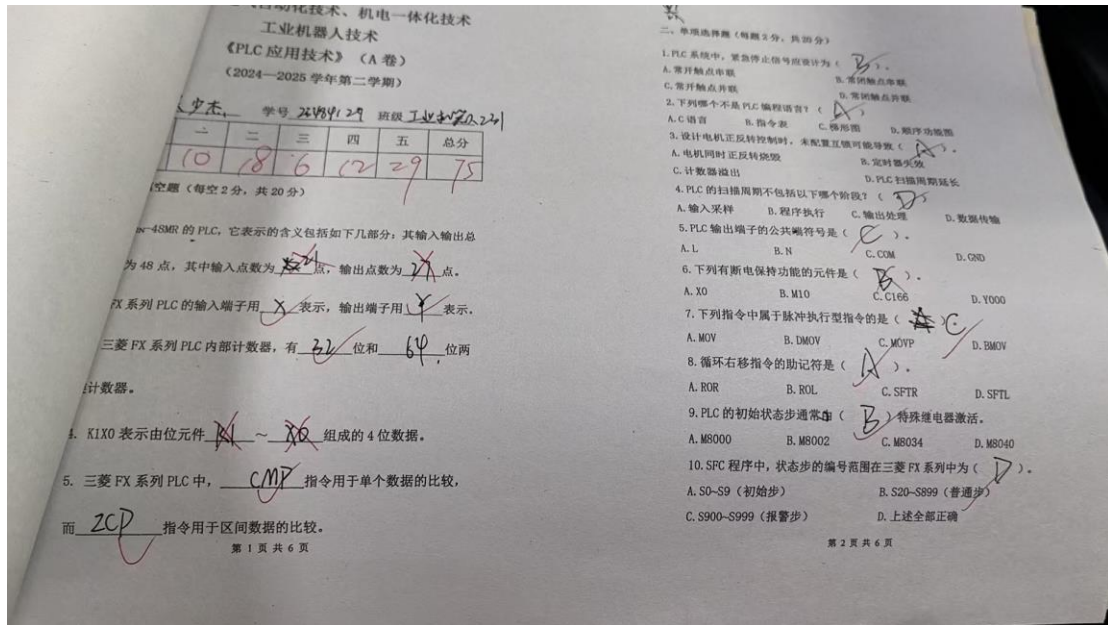 自动化技术、机电一体化技术
工业机器人技术
《PLC 应用技术》（A 卷）
（2024—2025 学年第二学期）
少杰 学号 班级
一 二 三 四 五 总分
10 18 6 12 29 75
空题（每空 2 分，共 20 分）
-48MR 的 PLC，它表示的含义包括如下几部分：其输入输出总
为 48 点，其中输入点数为 点，输出点数为 点。
FX 系列 PLC 的输入端子用 X 表示，输出端子用 Y 表示。
三菱 FX 系列 PLC 内部计数器，有 32 位和 64 位两
计数器。
4. K1X0 表示由位元件 K1 ～ X0 组成的 4 位数据。
5. 三菱 FX 系列 PLC 中， CMP 指令用于单个数据的比较，
而 ZCP 指令用于区间数据的比较。
第 1 页 共 6 页
二、单项选择题（每题 2 分，共 20 分）
1. PLC 系统中，紧急停止信号应设计为（ B ）。
A. 常开触点串联 B. 常闭触点串联
C. 常开触点并联 D. 常闭触点并联
2. 下列哪个不是 PLC 编程语言？（ A ）
A. C 语言 B. 指令表 C. 梯形图 D. 顺序功能图
3. 设计电机正反转控制时，未配置互锁可能导致（ A ）。
A. 电机同时正反转烧毁 B. 定时器失效
C. 计数器溢出 D. PLC 扫描周期延长
4. PLC 的扫描周期不包括以下哪个阶段？（ D ）
A. 输入采样 B. 程序执行 C. 输出处理 D. 数据传输
5. PLC 输出端子的公共端符号是（ C ）。
A. L B. N C. COM D. GND
6. 下列有断电保持功能的元件是（ B ）。
A. X0 B. M10 C. C166 D. Y000
7. 下列指令中属于脉冲执行型指令的是（ C ）
A. MOV B. DMOV C. MOVP D. BMOV
8. 循环右移指令的助记符是（ A ）。
A. ROR B. ROL C. SFTR D. SFTL
9. PLC 的初始状态步通常由（ B ）特殊继电器激活。
A. M8000 B. M8002 C. M8034 D. M8040
10. SFC 程序中，状态步的编号范围在三菱 FX 系列中为（ D ）。
A. S0~S9（初始步） B. S20~S899（普通步）
C. S900~S999（报警步） D. 上述全部正确
第 2 页 共 6 页